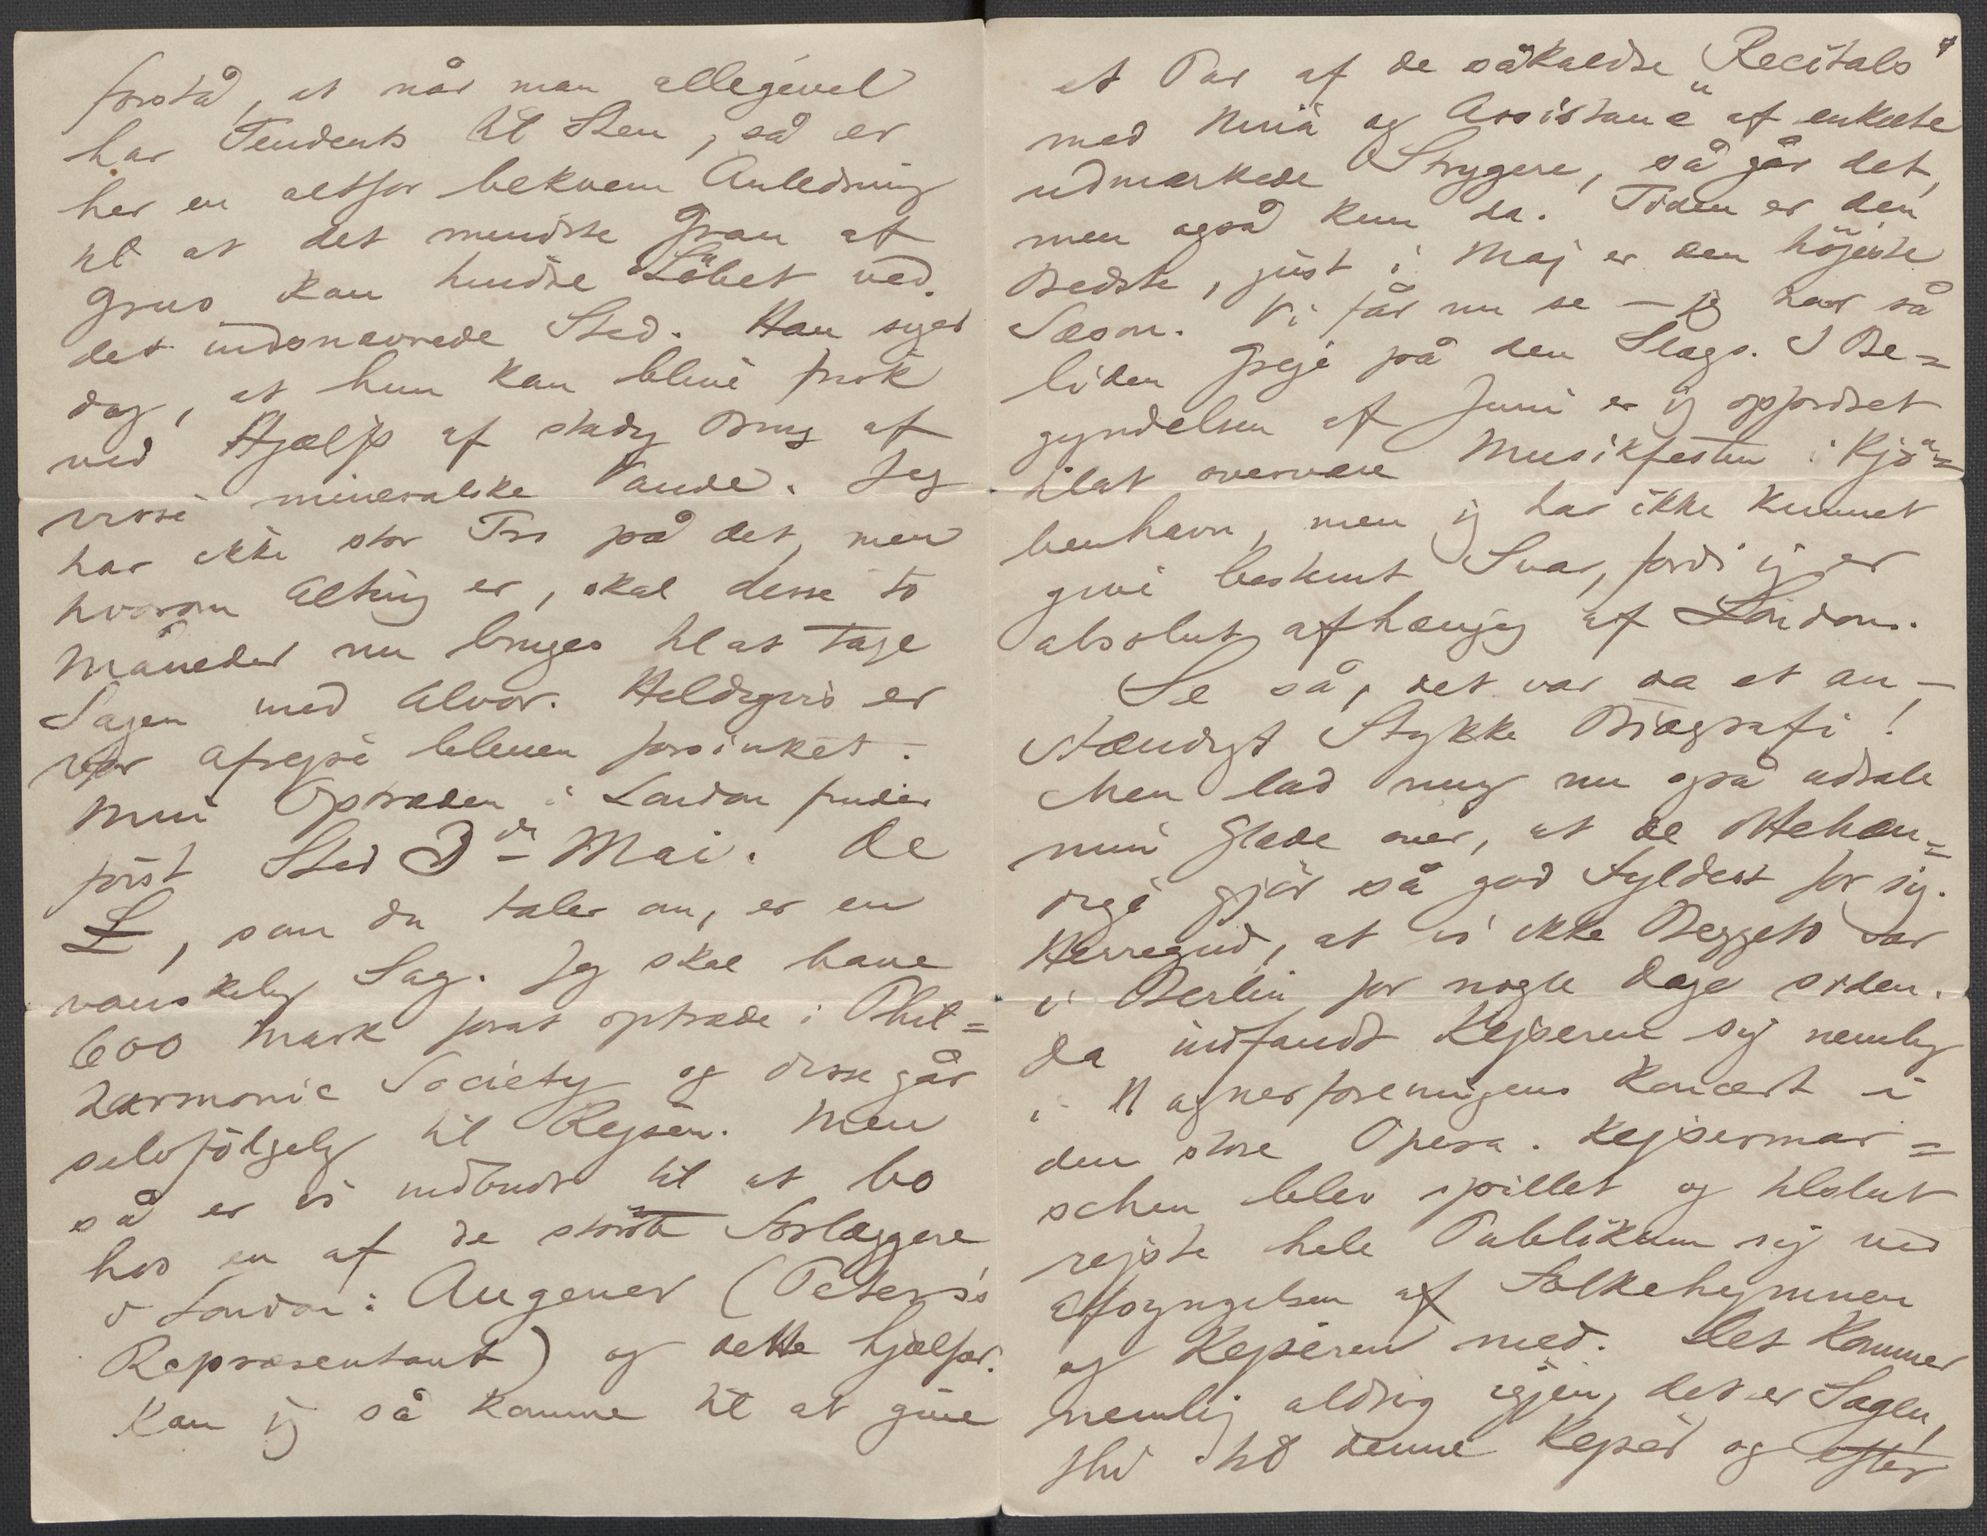 forstå, at når man allegevel
har Tendents til Sten, så er
her en altfor bekvem Anledning
til at det mindste Gran af
Grus kan hindre Löbet ved
det indsnævrede Sted. Han siger
dog, at hun kan blive frisk
ved Hjælp af stadig Brug af
visse mineralske Vande. Jeg
har ikke stor Tro på det, men
hvorom Alting er, skal disse to
Måneder nu bruges til at tage
Sagen med Alvor. Heldigvis er
vor Afrejse bleven forsinket.
Min Optræden i London finder
först Sted 3die Mai. De
£, som du taler om, er en
vanskelig Sag. Jeg skal have
600 Mark forat optræde i Phil=
harmonic Society og disse går
selvfölgelig til Rejsen. Men
så er vi indbudt til at bo
hos en af de störste Forlæggere
i London: Augener (Peters's
Repræsentant) og dette hjælper.
Kan jeg så komme til at give
et Par af de såkaldte „Recitals"
med Nina og Assistance af enkelte
udmærkede Strygere, så går det,
men også kun da. Tiden er den
Bedste, just i Maj er den höjeste
Sæson. Vi får nu se – jeg har så
liden Greje på den Slags. I Be=
gyndelsen af Juni er jeg opfordret
til at overvære Musikfesten i Kjö=
benhavn, men jeg har ikke kunnet
give bestemt Svar, fordi jeg er
absolut afhængig af London.
Se så, det var da et an–
stændigt Stykke Biografi!
Men lad mig nu også udtale
min Glæde over, at de
gjör så god Fyldest for sig.
Herregud, at vi ikke Beggeto var
i Berlin for nogle Dage siden.
Da indfandt Kejseren sig nemlig
i Wagnerforeningens Koncert i
den store Opera. Kejsermar=
schen blev spillet og tilslut
rejste hele Publikum sig ved
Afsyngelsen af Folkehymnen
og Kejseren med. Det kommer
nemlig aldrig igjen, det er Sagen,
thi til denne Kejser og efter